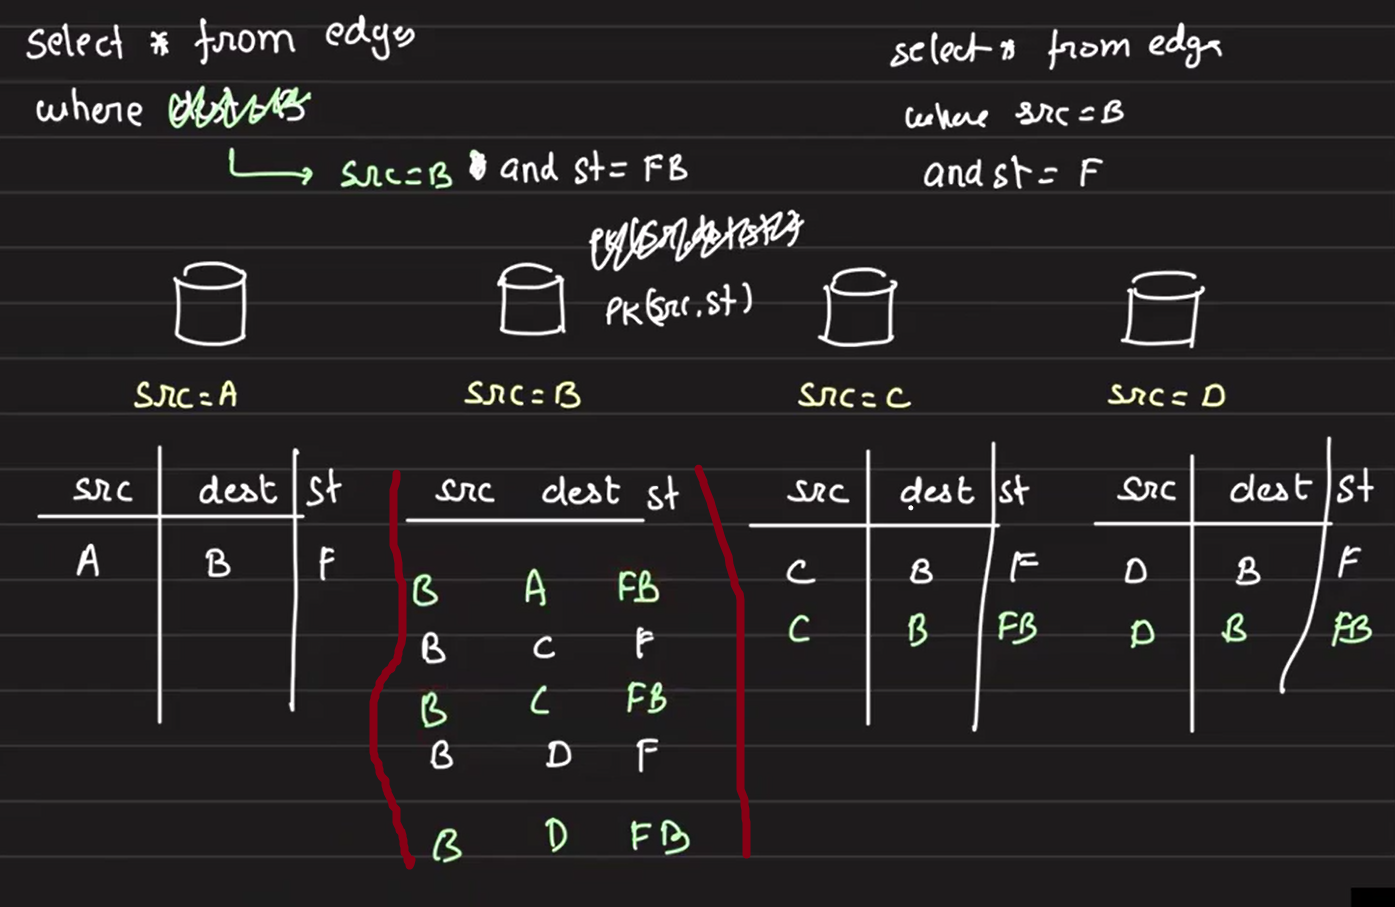 select * from edges
where
src=B and st= FB
select * from edge
where src=B
and st= F
PK(src, st)
src=A
src=B
src=C
src=D
src dest st
A B F
src dest st
B A FB
B C F
B C FB
B D F
B D FB
src dest st
C B F
C B FB
src dest st
D B F
D B FB